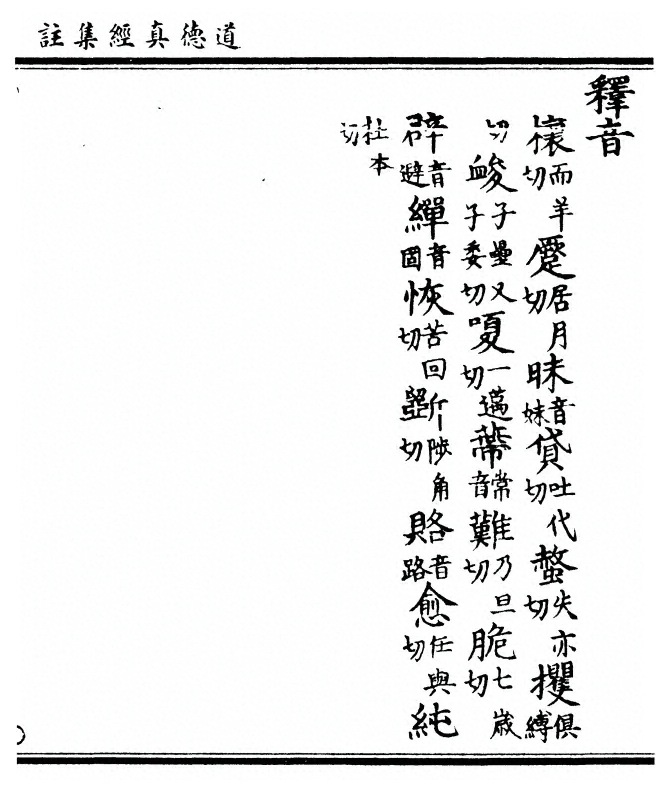 道德真經集註
釋音
攘而羊切蹷居月切昧音妹貸吐代切螫失亦切攫俱縛
切䘒子壘又子委切嗄一邁切蔕音常難乃旦切脆七歲切
辟音避繟音固恢苦回切斲陟角切賂音路愈任與切純
杜本切